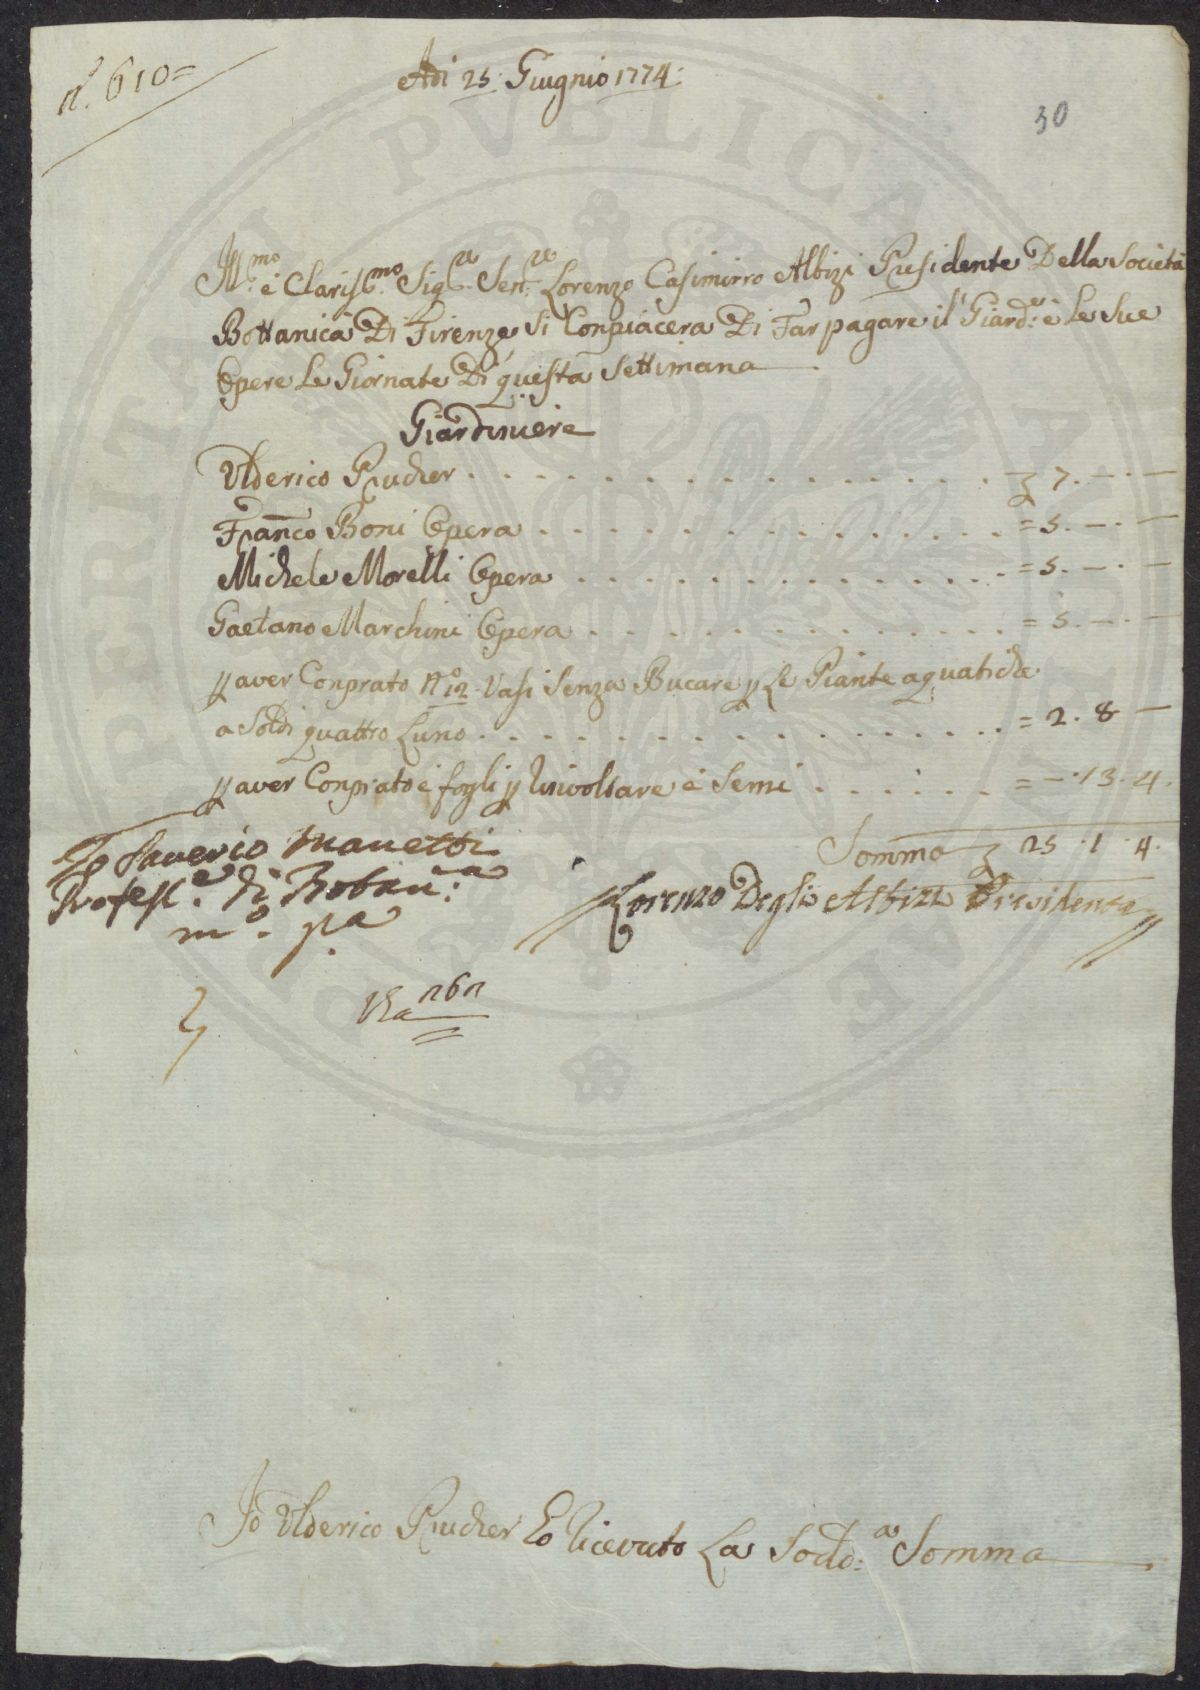 n.° 610=
Adi 25. Giugnio 1774:
30
Ill.mo e Claris.mo Sig.re Sen.re Lorenzo Casimirro Albizi Presidente Della Società
Bottanica Di Firenze Si Conpiacera Di Far pagare il Giard.re e Le Sue
Opere Le Giornate Di questa Settimana
Giardiniere
Ulderico Prucher . . . . . . . . . . . . . . . . . 7. — . —
Franco Boni Opera . . . . . . . . . . . . . . = 5. — . —
Michele Morelli Opera . . . . . . . . . . . . . = 5. — . —
Gaetano Marchini Opera . . . . . . . . . . . . . = 5. — . —
p aver Conprato N.° 12 Vasi Senza Bucare p Le Piante aquatiche
a Soldi quattro Luno . . . . . . . . . . . . . . . . = 2. 8 —
p aver Conprato e fogli p Involtare e Semi . . . . . . = — . 13. 4.
Somma 25 . 1 . 4.
Io Saverio Manetti
Profess.e di Botan.ca
m.o p.a
Lorenzo Degli Albizi Presidente
Io Ulderico Prucher Ho Ricevuto La Sodd.a Somma